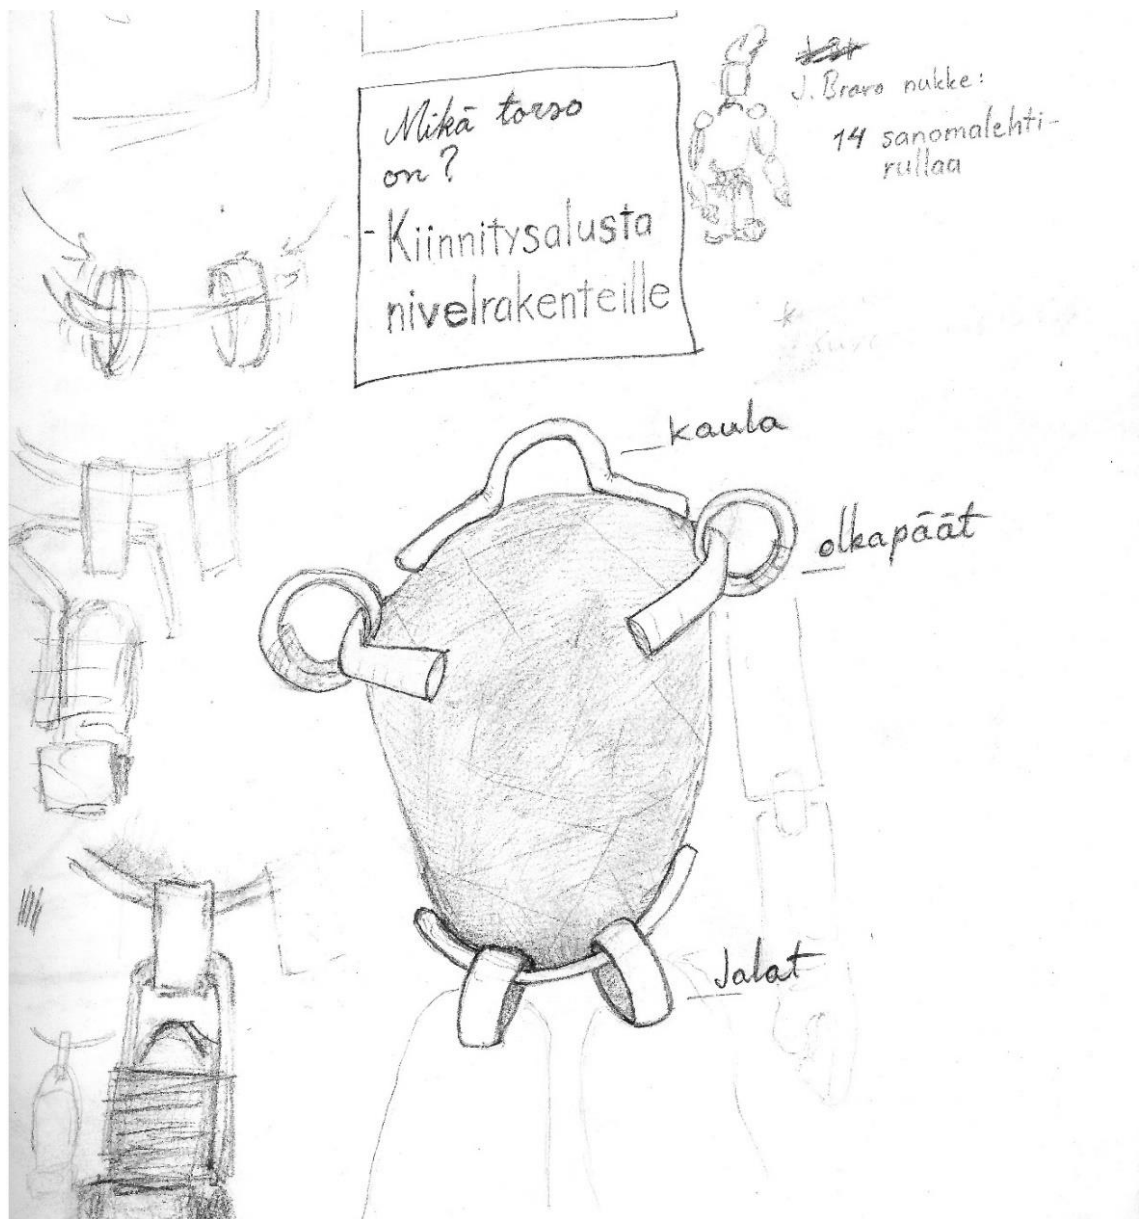 Mikä torso
on?
- Kiinnitysalusta
nivelrakenteille
J. Bravo nukke:
14 sanomalehti-
rullaa
kaula
olkapäät
Jalat